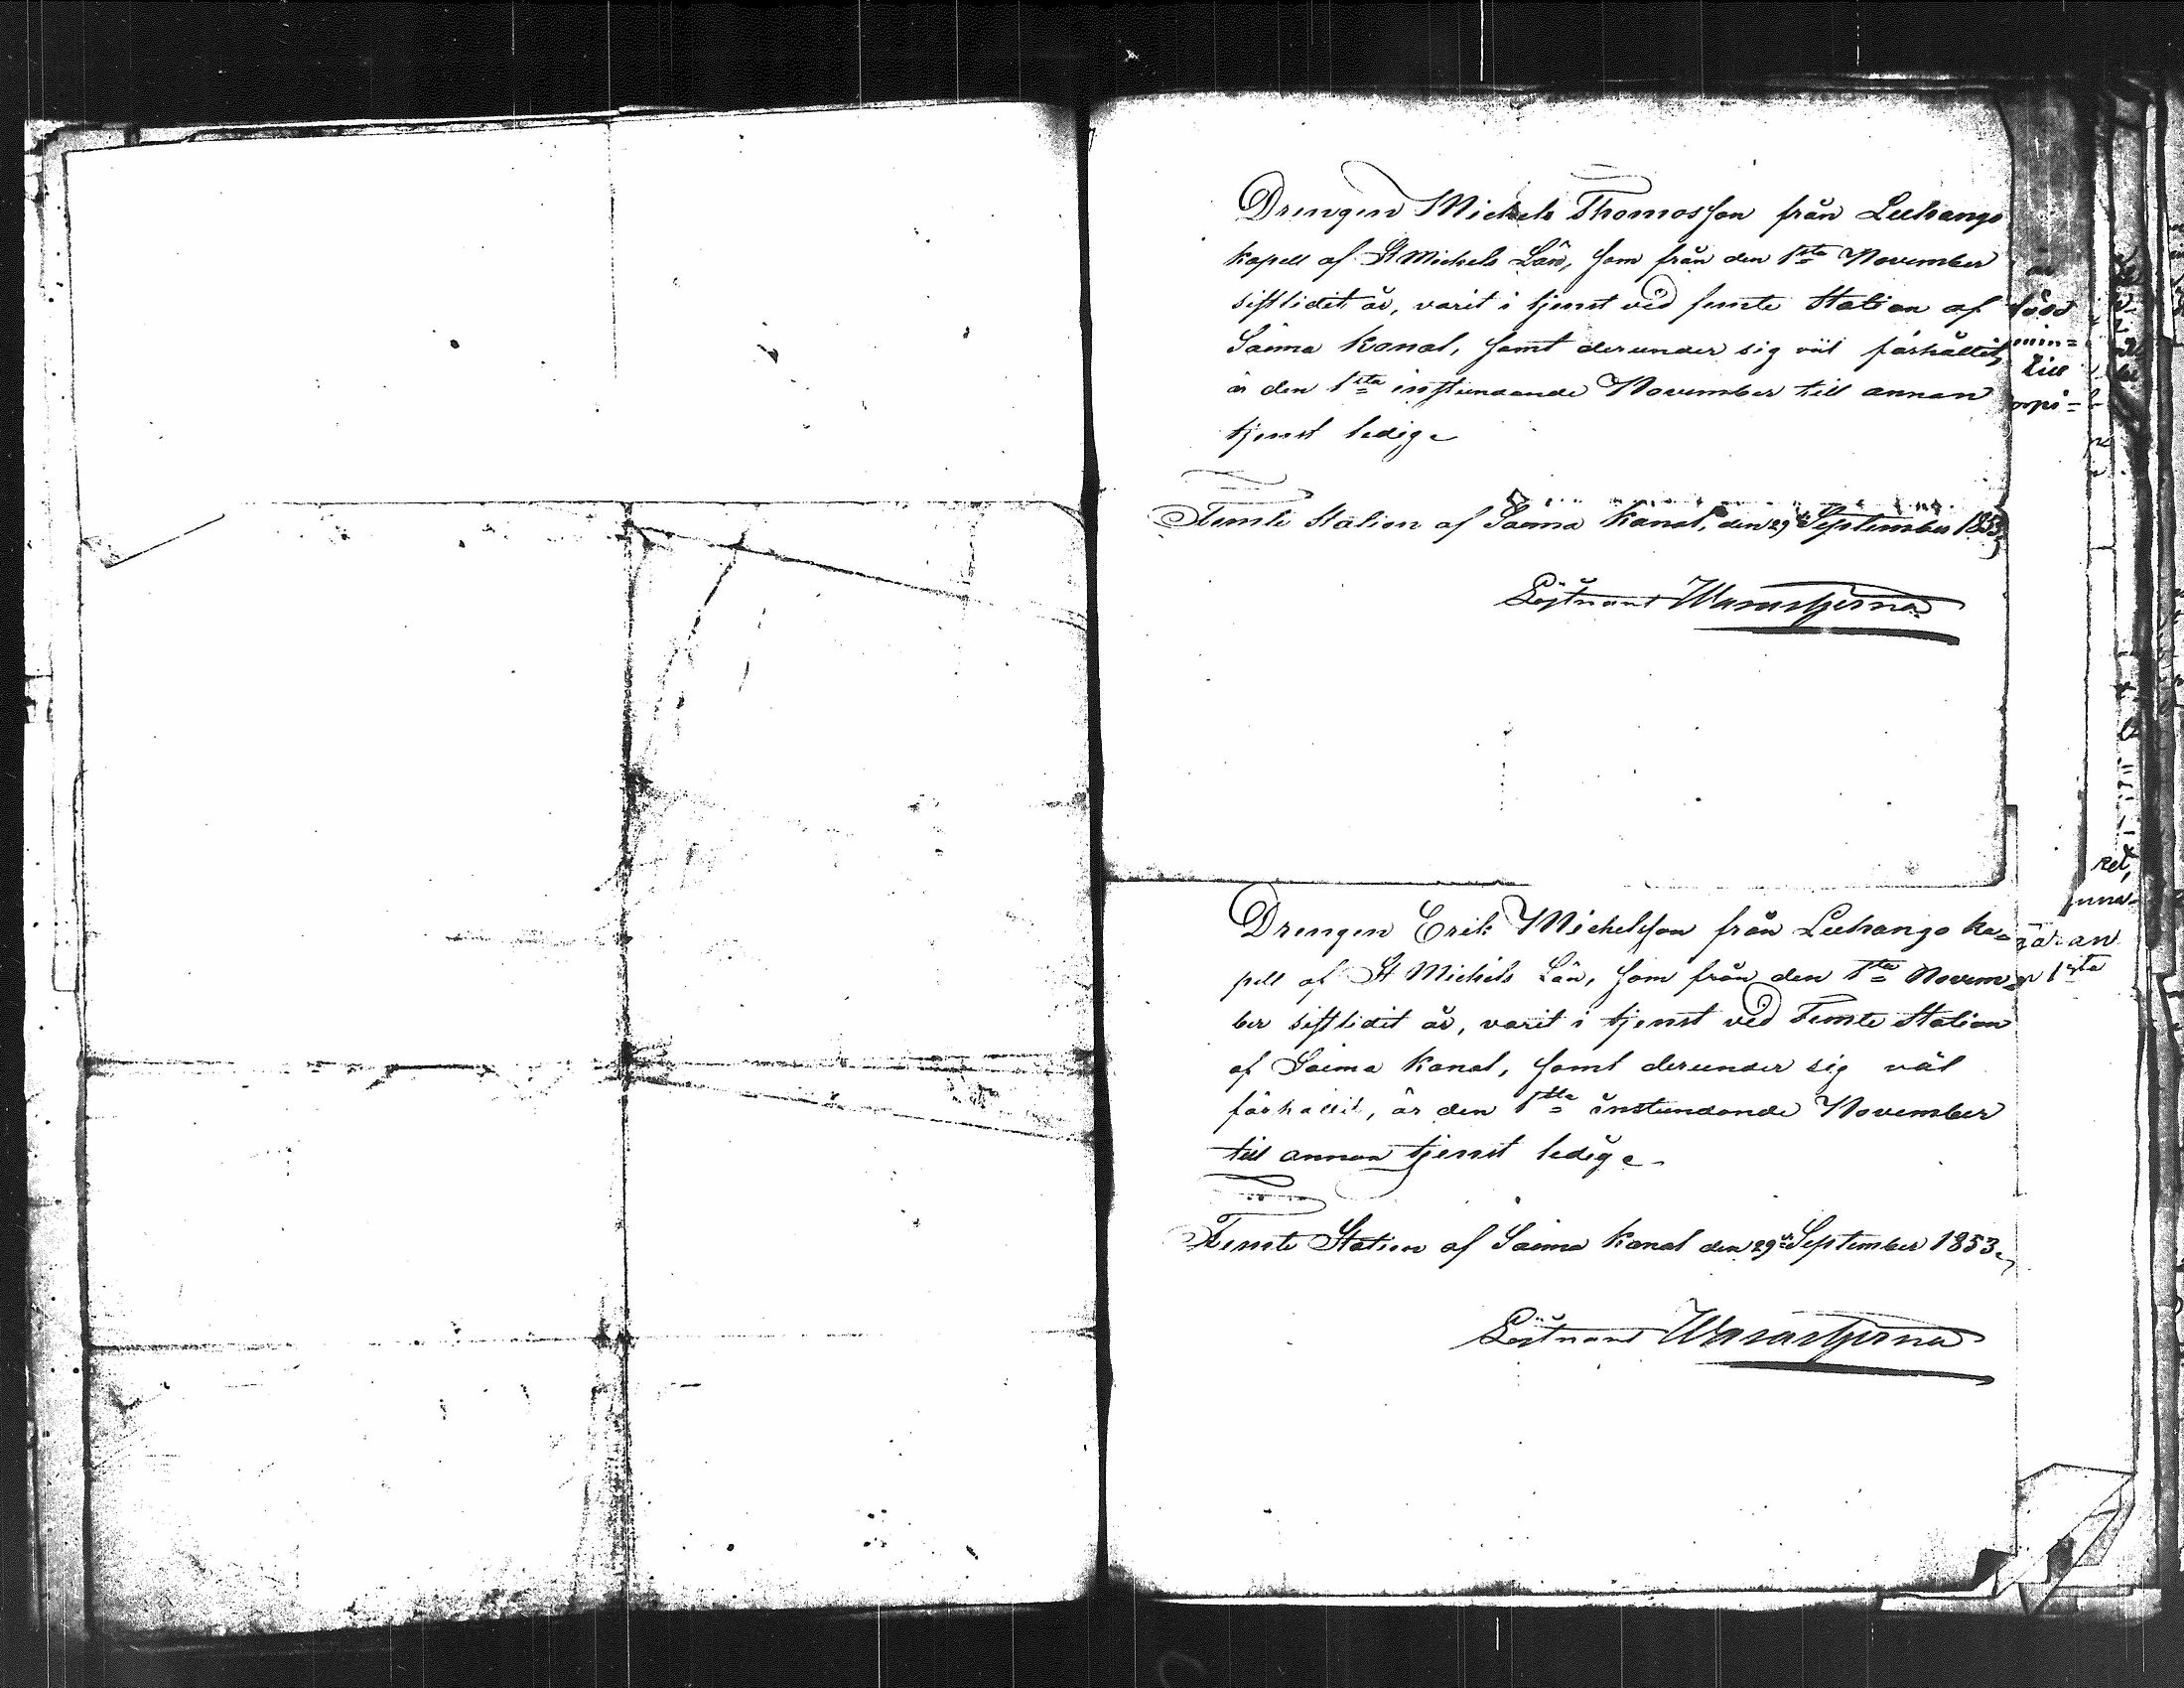 Drengen Michels Thomosson från Luhango
kapell af St Michels Län, som från den 1sta November
sistlidit år, varit i tjenst vid femte Station af
Saima Kanal, samt derunder sig väl förhållit,
är den 1sta instundande November till annan
tjenst ledig
Femte Station af Saima Kanal, den 29de September 1853.
Löjtnant Wasastjerna
Drengen Erik Michelsson från Luhango ka=
pell af St Michels Län, som från den 1sta Novem=
ber sistlidit år, varit i tjenst vid Femte Station
af Saima Kanal, samt derunder sig väl
förhållit, är den 1sta instundande November
till annan tjenst ledig
Femte Station af Saima Kanal den 29de September 1853.
Löjtnant Wasastjerna